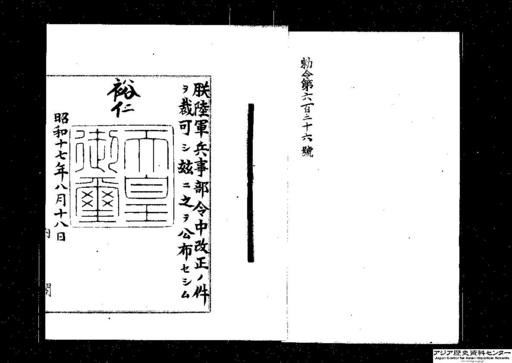 勅令第六百三十六號
朕陸軍兵事部令中改正ノ件
ヲ裁可シ玆ニ之ヲ公布セシム
裕仁
天皇
御璽
昭和十七年八月十八日
内閣
アジア歴史資料センター
Japan Center for Asian Historical Records